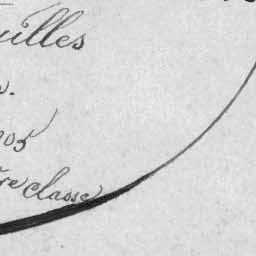 uilles
s.
905
re classe